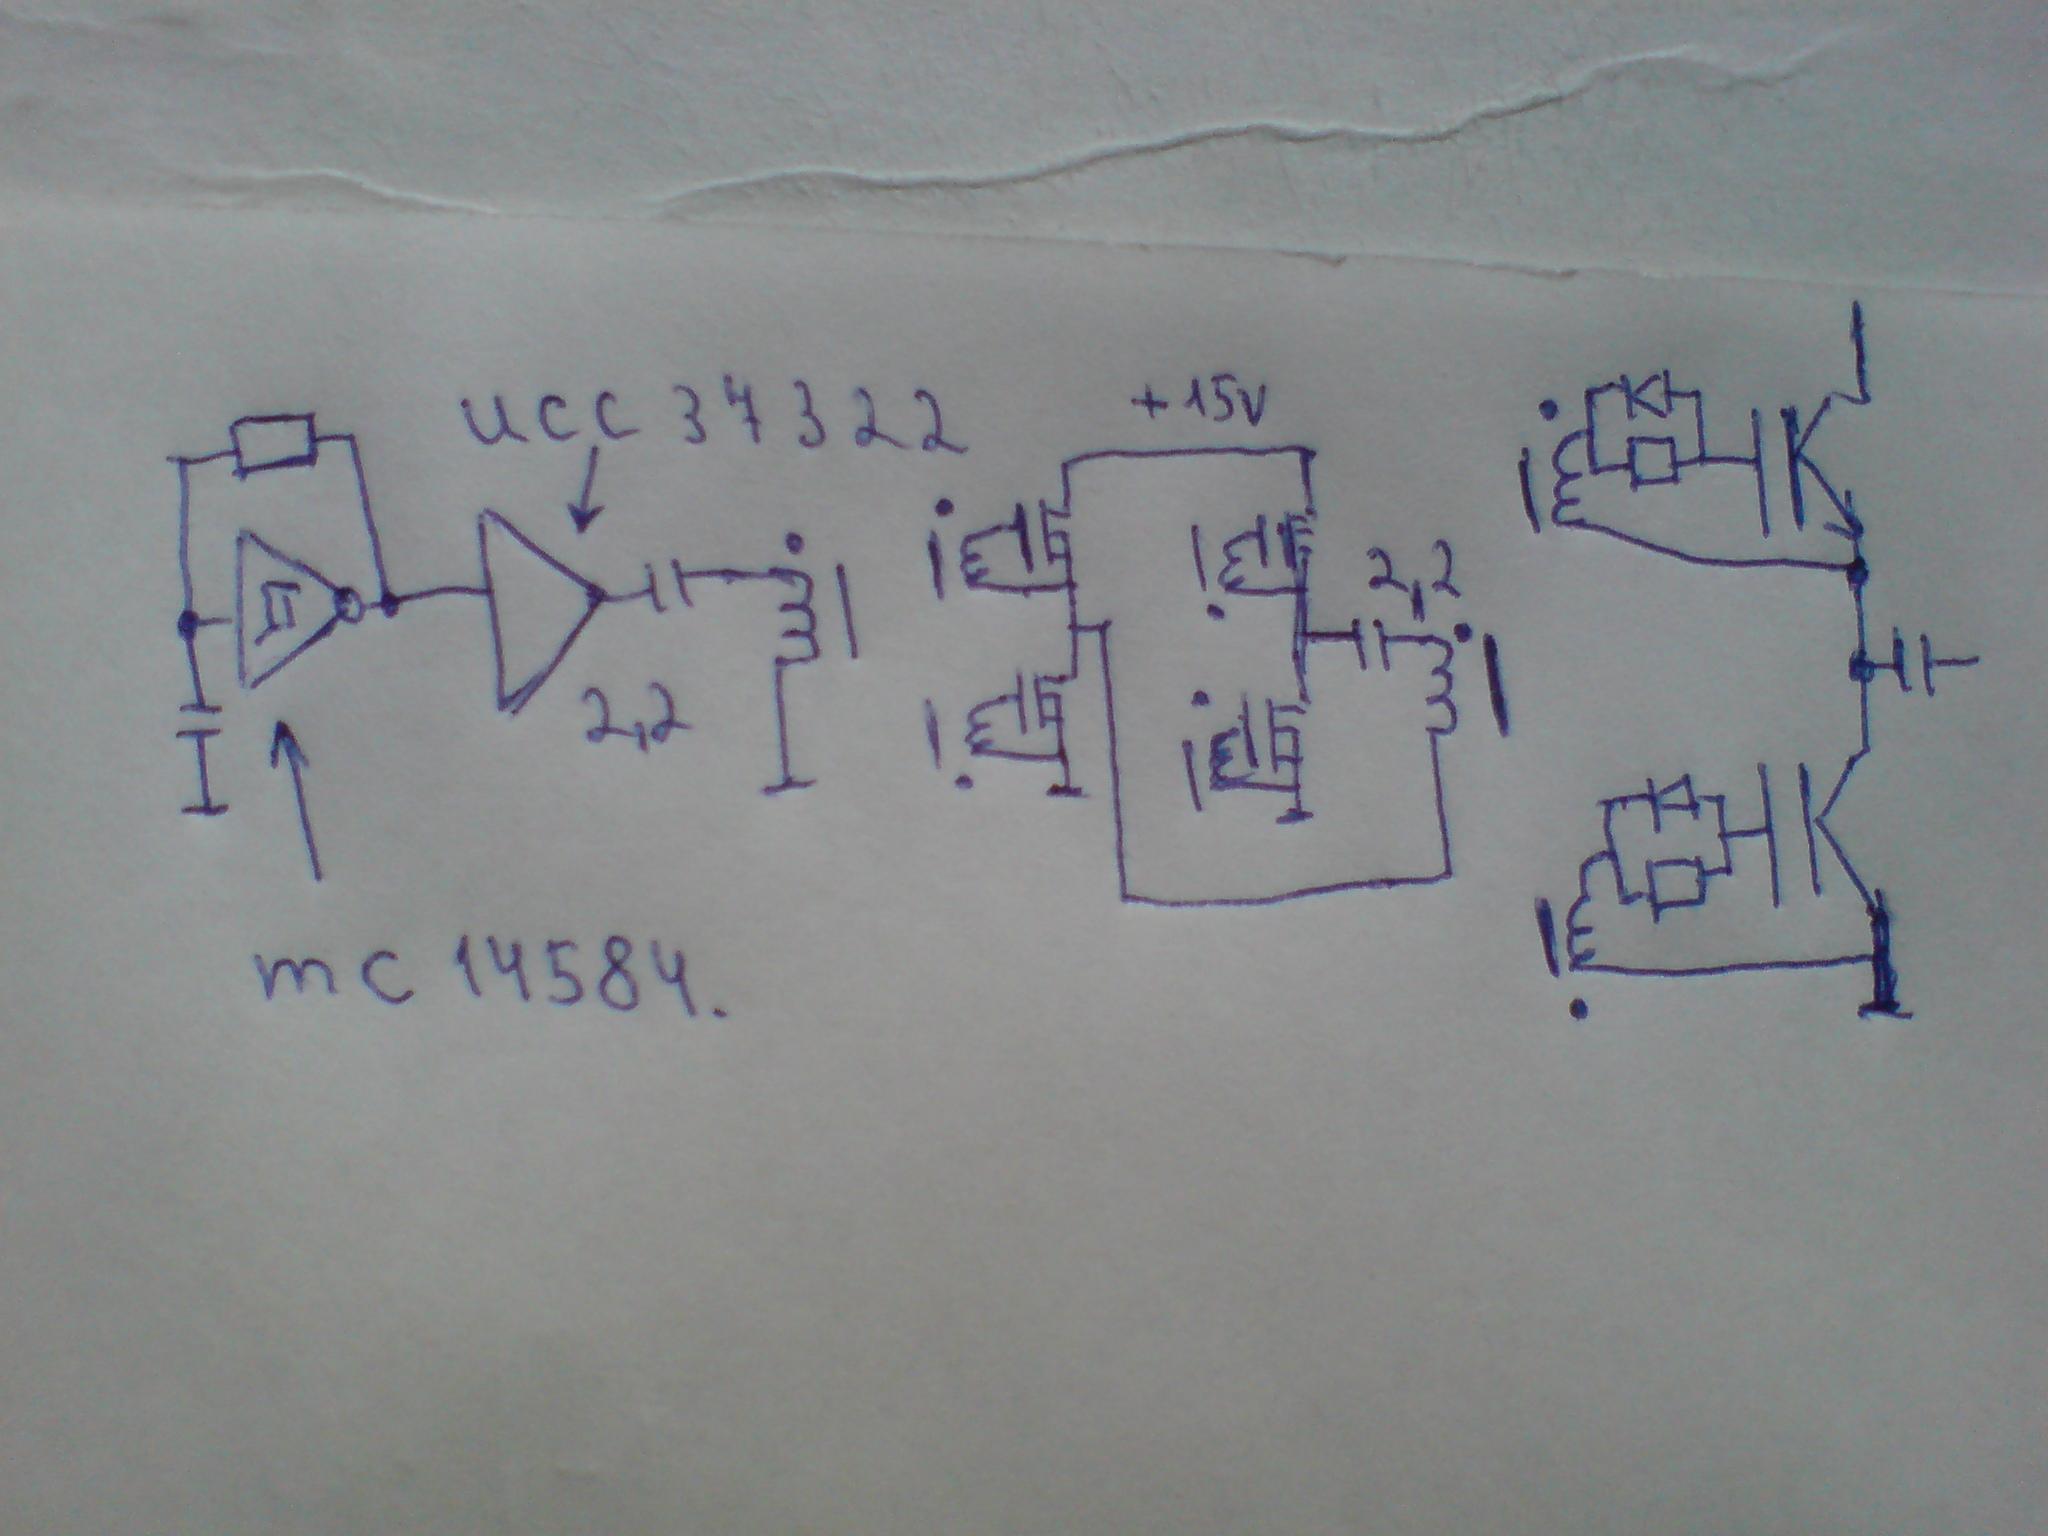 ucc 37322
+15v
2,2
2,2
mc 14584.